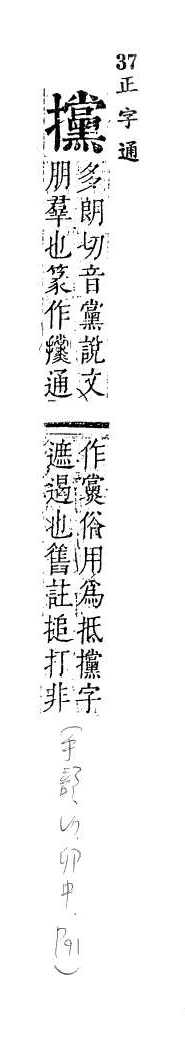 37 正字通
攩
多朗切音黨說文
朋羣也篆作攩通
作黨俗用爲抵攩字
遮遏也舊註搥打非
(手部、卯中、91)